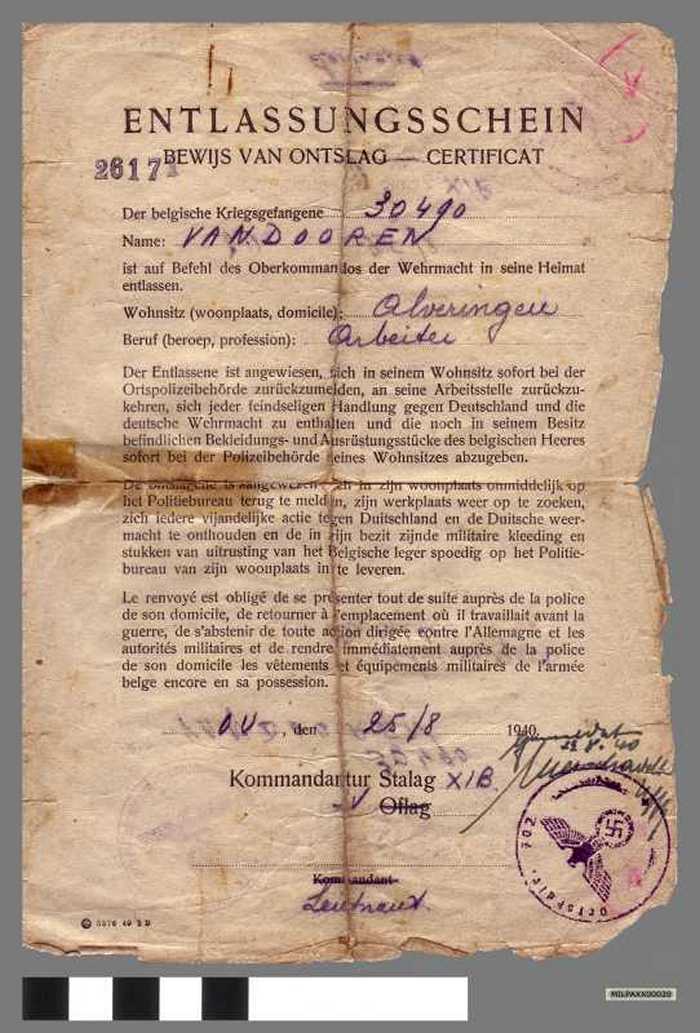 ENTLASSUNGSSCHEIN
BEWIJS VAN ONTSLAG — CERTIFICAT
2617
XIB
Der belgische Kriegsgefangene 30490
Name: VAN DOOREN
ist auf Befehl des Oberkommandos der Wehrmacht in seine Heimat
entlassen.
Wohnsitz (woonplaats, domicile): Alveringen
Beruf (beroep, profession): Arbeiter
Der Entlassene ist angewiesen, sich in seinem Wohnsitz sofort bei der
Ortspolizeibehörde zurückzumelden, an seine Arbeitsstelle zurückzu-
kehren, sich jeder feindseligen Handlung gegen Deutschland und die
deutsche Wehrmacht zu enthalten und die noch in seinem Besitz
befindlichen Bekleidungs- und Ausrüstungsstücke des belgischen Heeres
sofort bei der Polizeibehörde seines Wohnsitzes abzugeben.
De ontslagene is aangewezen zich in zijn woonplaats onmiddelijk op
het Politiebureau terug te melden, zijn werkplaats weer op te zoeken,
zich iedere vijandelijke actie tegen Duitschland en de Duitsche weer-
macht te onthouden en de in zijn bezit zijnde militaire kleeding en
stukken van uitrusting van het Belgische leger spoedig op het Politie-
bureau van zijn woonplaats in te leveren.
Le renvoyé est obligé de se présenter tout de suite auprès de la police
de son domicile, de retourner à l'emplacement où il travaillait avant la
guerre, de s'abstenir de toute action dirigée contre l'Allemagne et les
autorités militaires et de rendre immédiatement auprès de la police
de son domicile les vêtements et équipements militaires de l'armée
belge encore en sa possession.
O.U. , den 25/8 1940.
28.8.40
Kommandantur Stalag XIB.
Oflag
702
Kommandant
Leutnant.
MILPAXX00020